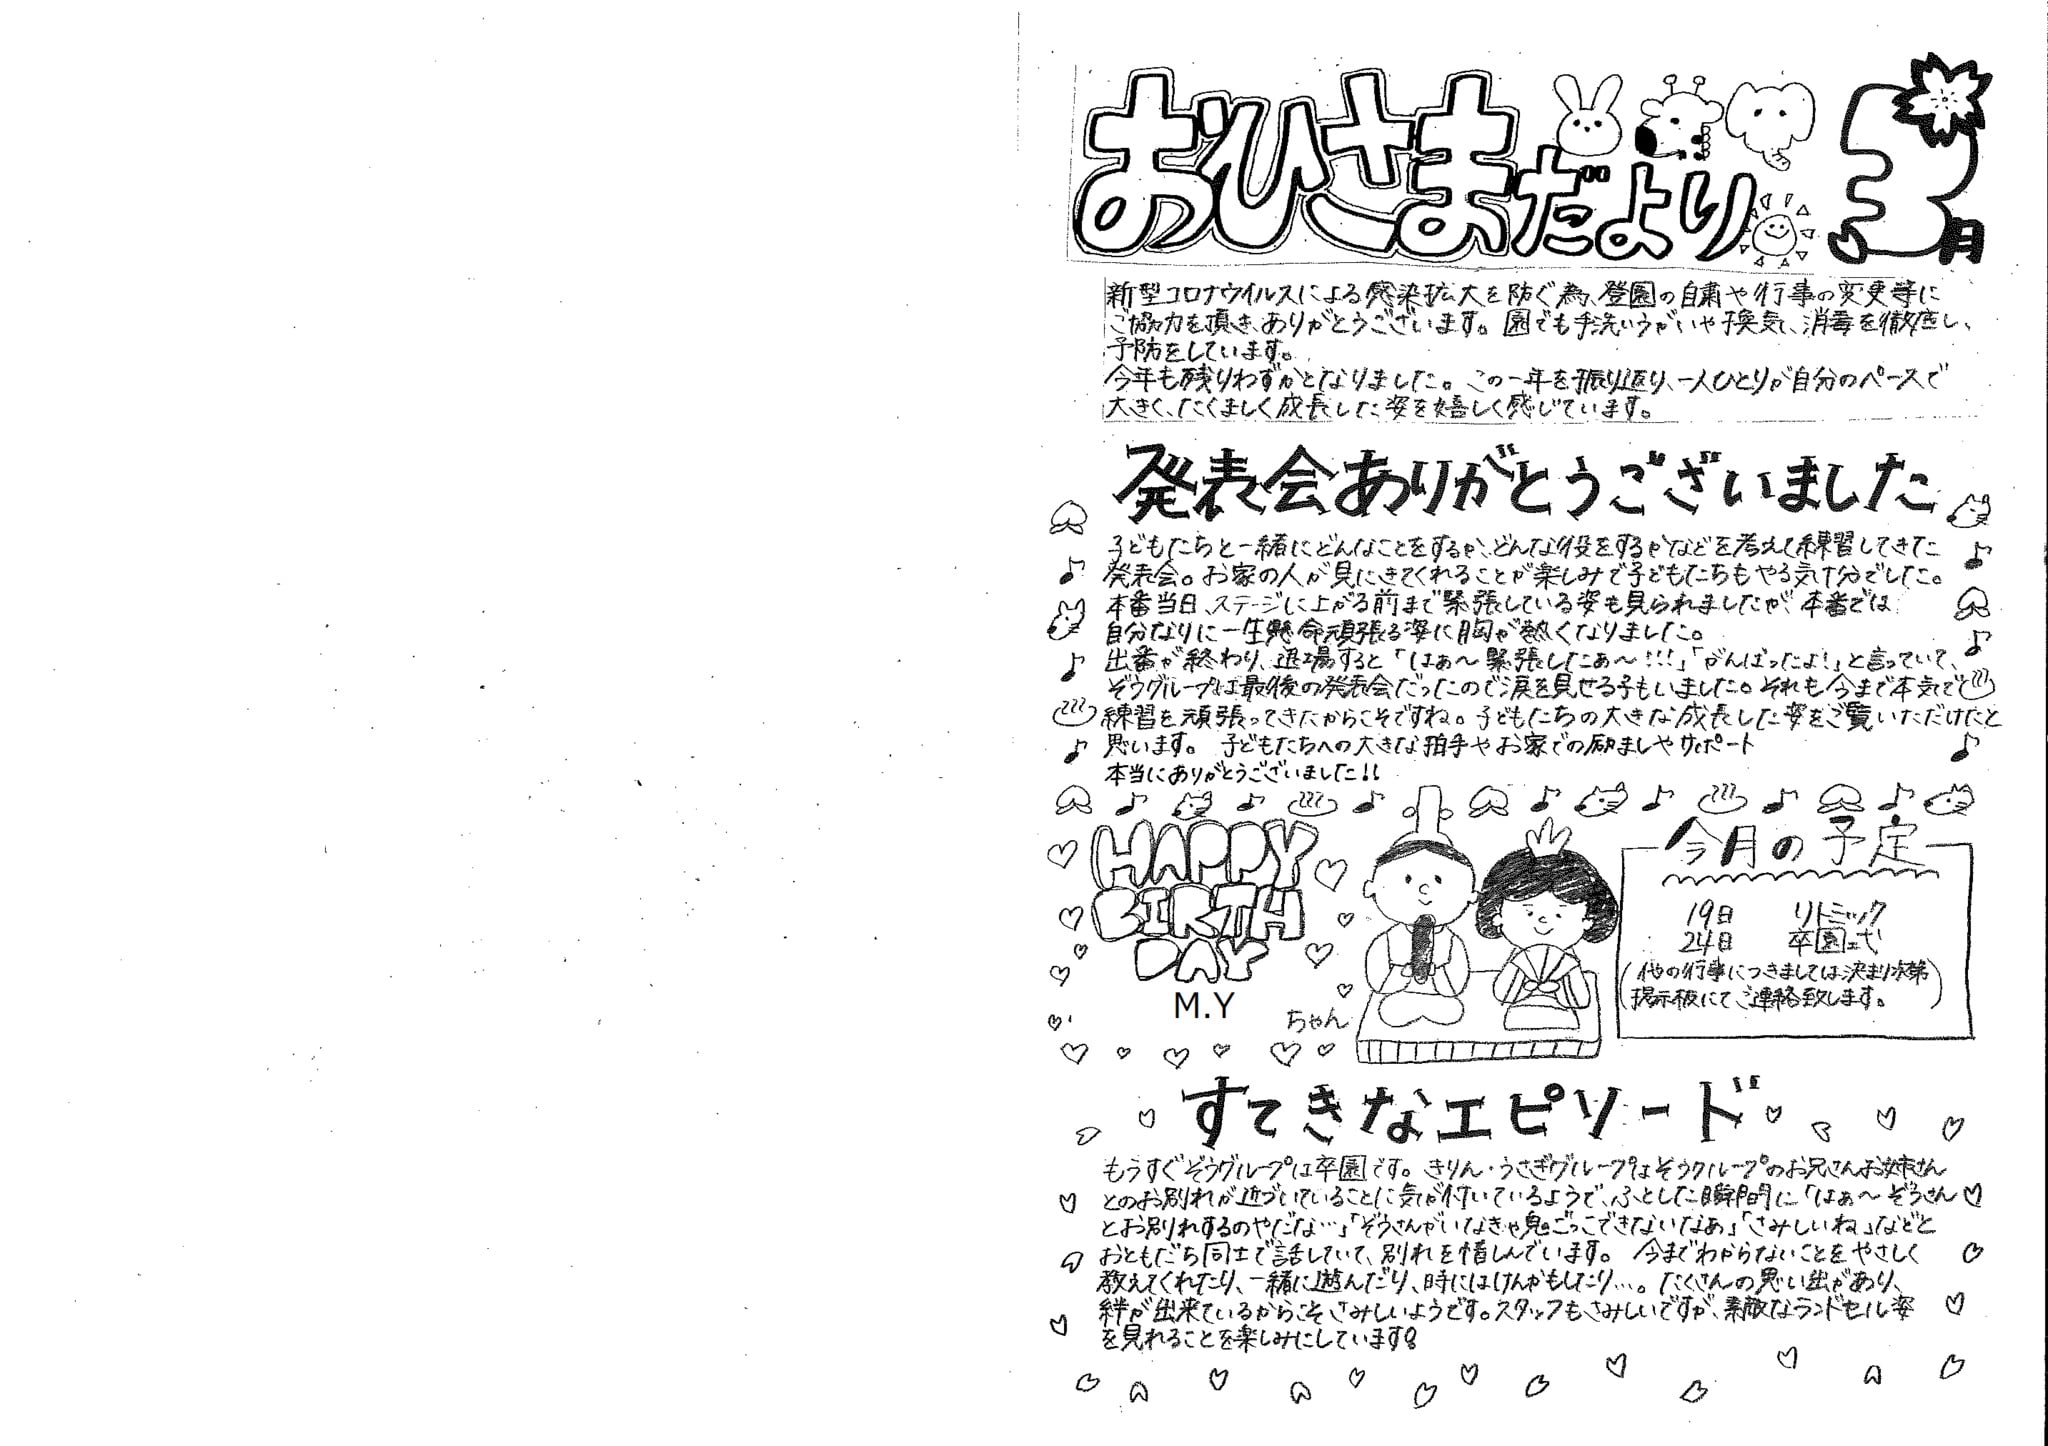 おひさまだより 3月
新型コロナウイルスによる感染拡大を防ぐ為、登園の自粛や行事の変更等に
ご協力を頂き、ありがとうございます。園でも手洗いうがいや換気、消毒を徹底し、
予防をしています。
今年も残りわずかとなりました。この一年を振り返り、一人ひとりが自分のペースで
大きく、たくましく成長した姿を嬉しく感じています。
発表会ありがとうございました
子どもたちと一緒にどんなことをするか、どんな役をするかなどを考えて練習してきた
発表会。お家の人が見にきてくれることが楽しみで子どもたちもやる気十分でした。
本番当日、ステージに上がる前まで緊張している姿も見られましたが、本番では
自分なりに一生懸命頑張る姿に胸が熱くなりました。
出番が終わり、退場すると「はぁ～緊張したぁ～!!!」「がんばったよ!」と言っていて、
ぞうグループは最後の発表会だったので涙を見せる子もいました。それも今まで本気で
練習を頑張ってきたからこそですね。子どもたちの大きな成長した姿をご覧いただけたと
思います。 子どもたちへの大きな拍手やお家での励ましやサポート
本当にありがとうございました!!
HAPPY
BIRTH
DAY
M.Y ちゃん
今月の予定
19日 リトミック
24日 卒園式
(他の行事につきましては決まり次第
掲示板にてご連絡致します。)
すてきなエピソード
もうすぐぞうグループは卒園です。きりん・うさぎグループはぞうグループのお兄さんお姉さん
とのお別れが近づいていることに気が付いているようで、ふとした瞬間に「はぁ～ぞうさん
とお別れするのやだな…」「ぞうさんがいなきゃ鬼ごっこできないなぁ」「さみしいね」などと
おともだち同士で話していて、別れを惜しんでいます。 今までわからないことをやさしく
教えてくれたり、一緒に遊んだり、時にはけんかもしたり…。たくさんの思い出があり、
絆が出来ているからこそさみしいようです。スタッフもさみしいですが、素敵なランドセル姿
を見れることを楽しみにしています!